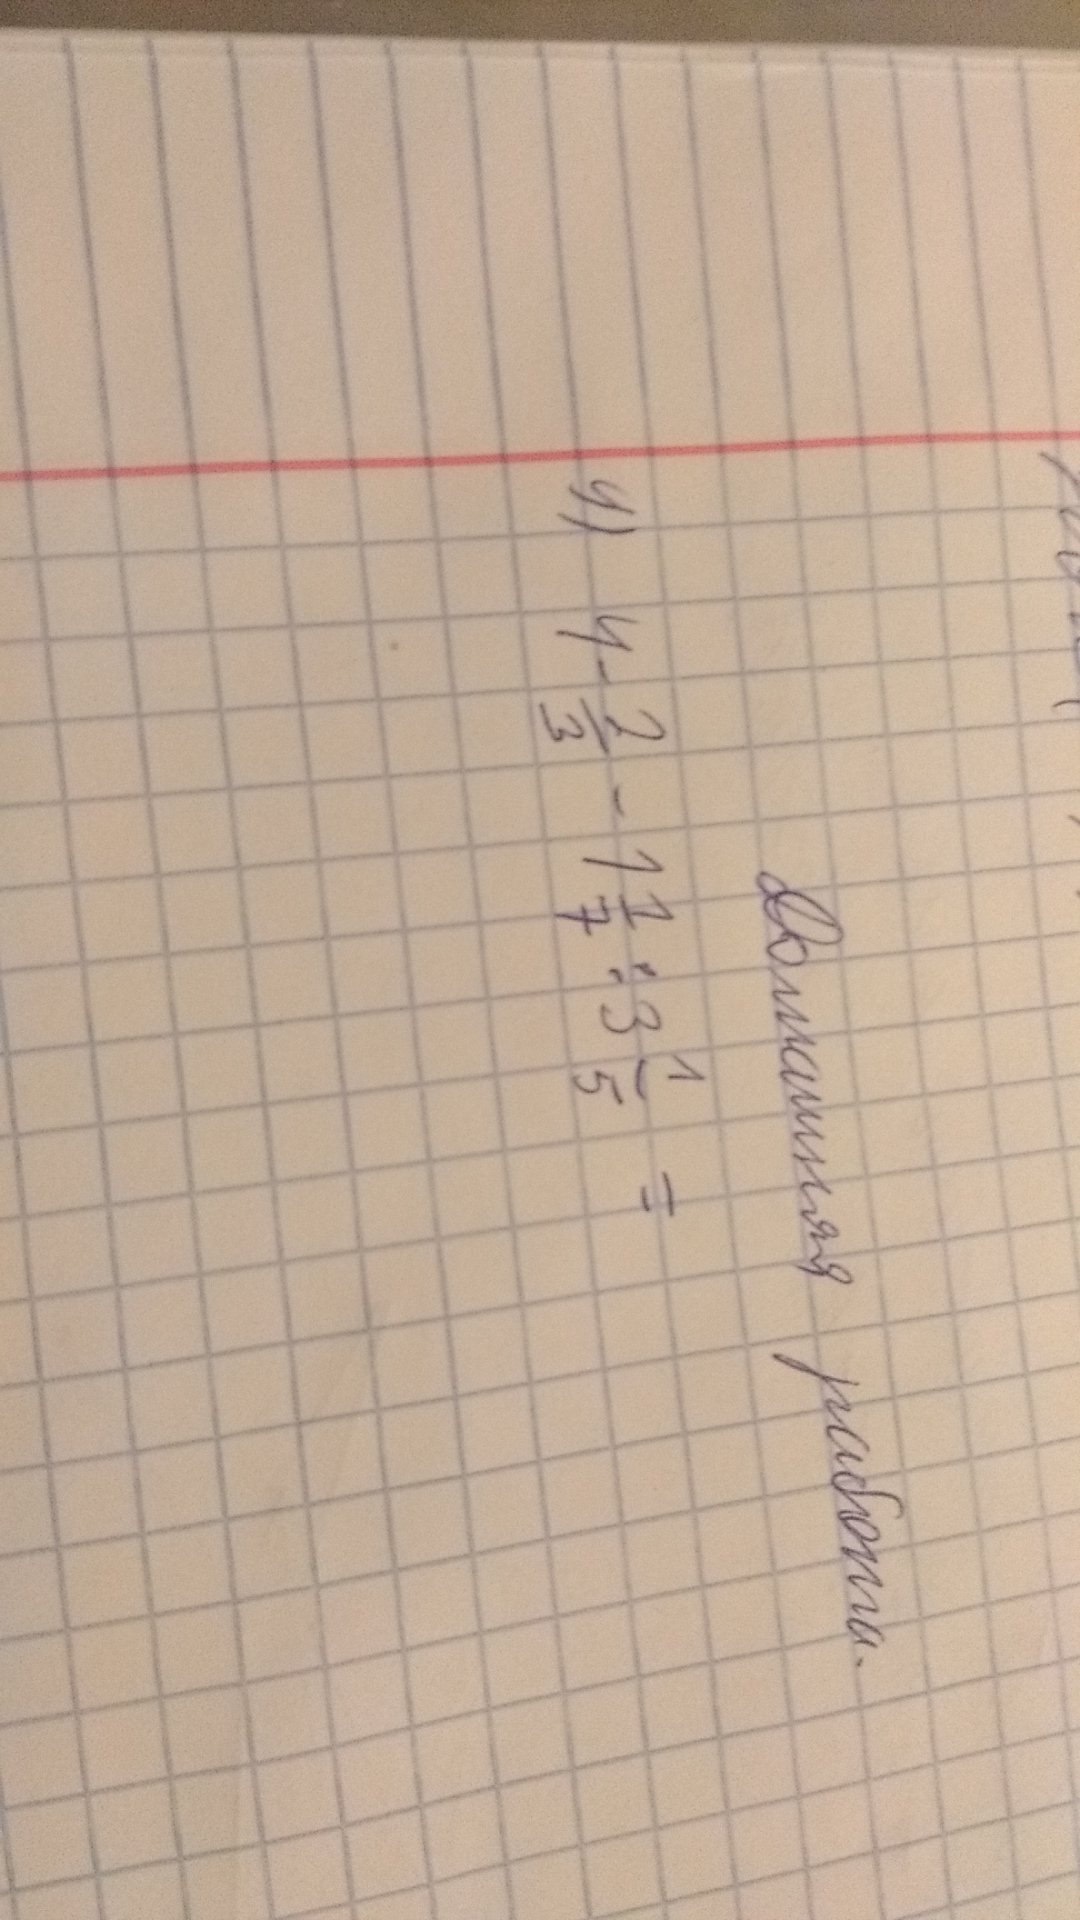 Домашняя работа.
4) 4 - 2/3 - 1 1/7 : 3 1/5 =